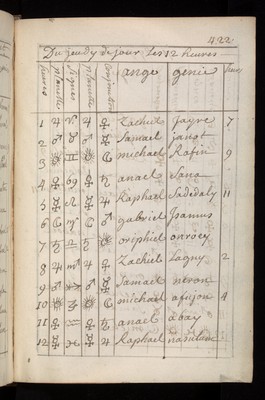 422
Du jeudy de jour Les 12 heures
heures planette signes planette ange genie
1 ♃ ♈ ♃ ♀ Zachiel Jayre 7
2 ♂ ♉ ♂ ☿ Samael janot
3 ☉ ♊ ☉ ☾ michael Rafin 9
4 ♀ ♋ ♀ ♄ anael Sana
5 ☿ ♌ ☿ ♃ Raphael Sadedaly 11
6 ☾ ♍ ☾ ♂ gabriel
7 ♄ ♎ ♄ ☉ oriphiel onrocy
8 ♃ ♏ ♃ ♀ Zachiel Lagny 2
9 ♂ ♐ ♂ ☿ Samael neron
10 ☉ ♑ ☉ ☾ michael 4
11 ♀ ♒ ♀ ♄ anael abay
12 ☿ ♓ ☿ ♃ Raphael